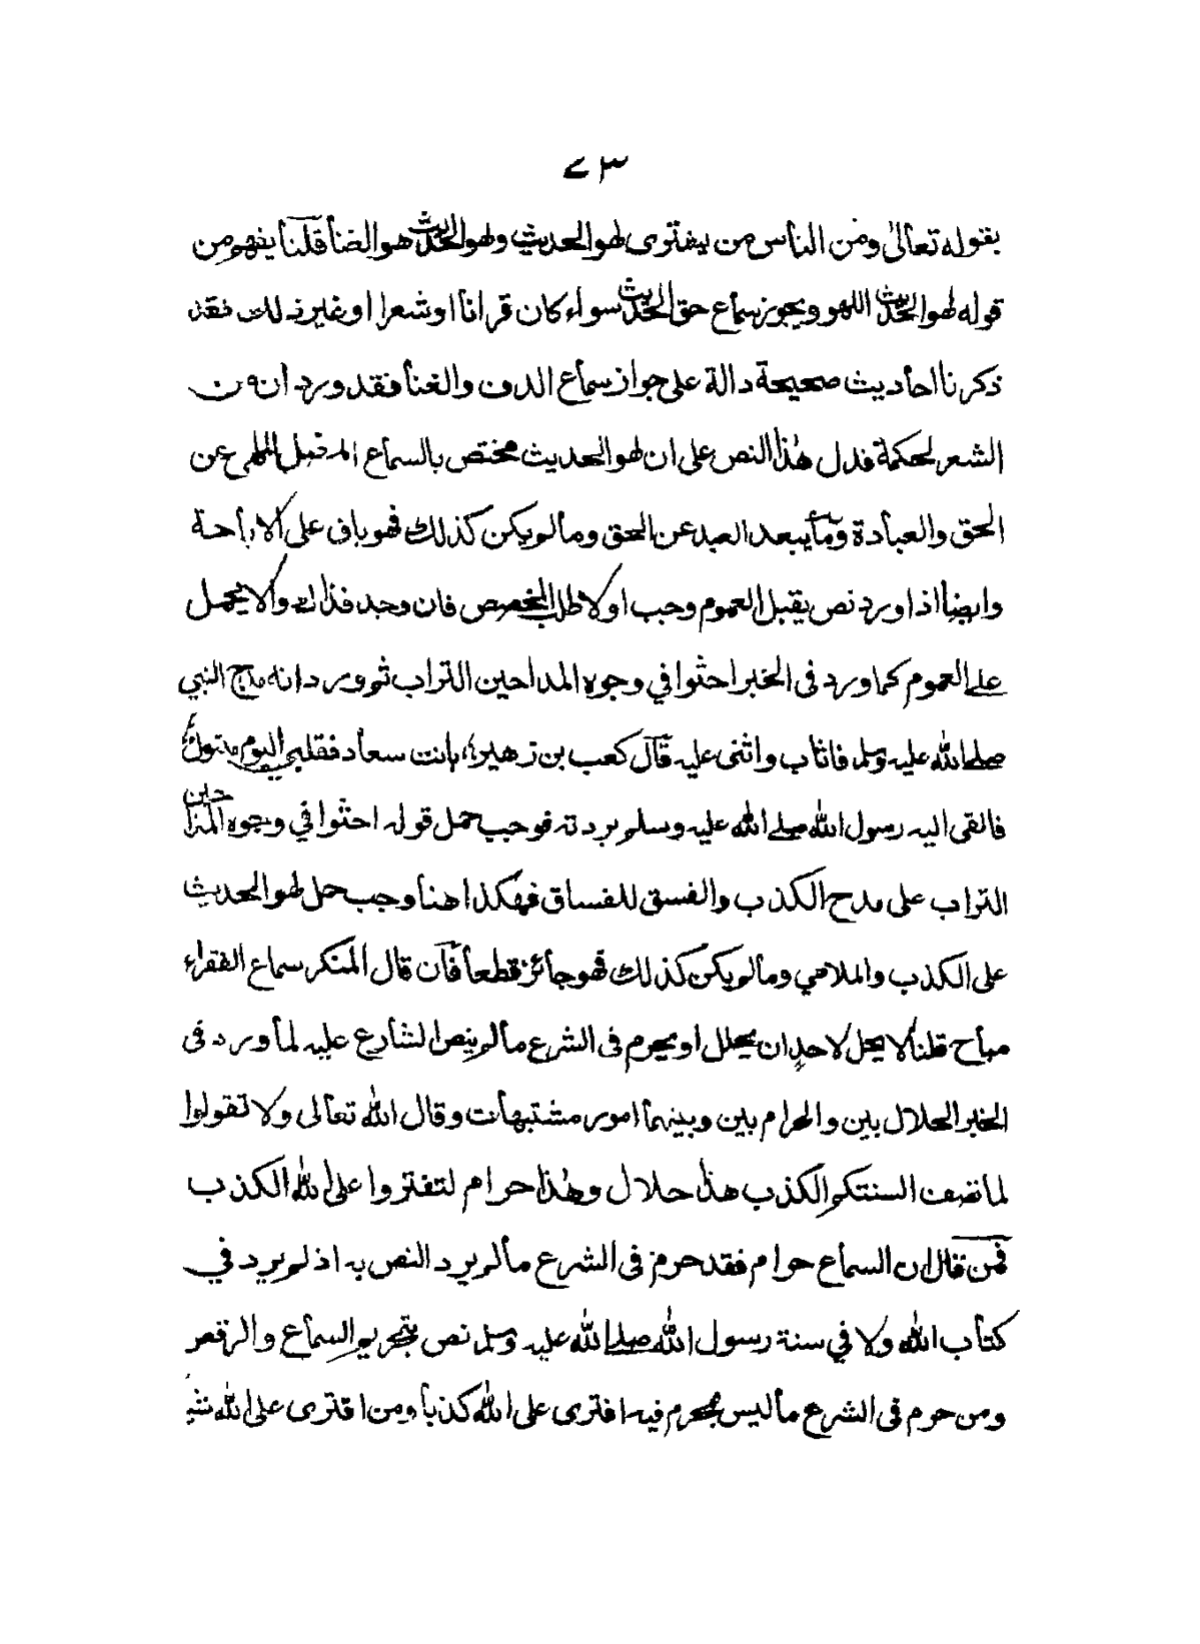 ٧٣
بقوله تعالىٰ ومن الناس من يشترى لهو الحديث ولهو الحديث هو الغنا قلنا يفهم من
قوله لهو الحديث اللهو ويجوز سماع حق الحديث سواء كان قرانا او شعرا او غير ذلك فقد
ذكرنا احاديث صحيحة دالة على جواز سماع الدف والغنا فقد ورد ان من
الشعر لحكمة فدل هٰذا النص على ان لهو الحديث مختص بالسماع الملهى عن
الحق والعبادة وما يبعد العبد عن الحق وما لم يكن كذلك فهو باق على الاباحة
وايضا اذا ورد نص يقبل العموم وجب اولا طلب المخصص فان وجد فذاك والا يحمل
على العموم كما ورد فى الخبر احثوا في وجوه المداحين التراب ثم ورد انه مدح النبي
صلى الله عليه وسلم فاثاب واثنى عليه قال كعب بن زهير؛ بانت سعاد فقلبي اليوم متبول
فالقى اليه رسول الله صلى الله عليه وسلم بردته فوجب حمل قوله احثوا في وجوه المداحين
التراب على مدح الكذب والفسق للفساق فهكذا هنا وجب حمل لهو الحديث
على الكذب والملاهي وما لم يكن كذلك فهو جائز قطعا فان قال المنكر سماع الفقراء
مباح قلنا لا يحل لاحدٍ ان يحلل او يحرم فى الشرع ما لم ينص الشارع عليه لما ورد فى
الخبر الحلال بين والحرام بين وبينهما امور مشتبهات وقال الله تعالى ولا تقولوا
لما تصف السنتكم الكذب هذا حلال وهٰذا حرام لتفتروا على الله الكذب
فمن قال ان السماع حرام فقد حرم فى الشرع ما لم يرد النص به اذ لم يرد في
كتاب الله ولا في سنة رسول الله صلى الله عليه وسلم نص بتحريم السماع والرقص
ومن حرم فى الشرع ما ليس بمحرم فيه افترى على الله كذبا ومن افترى على الله